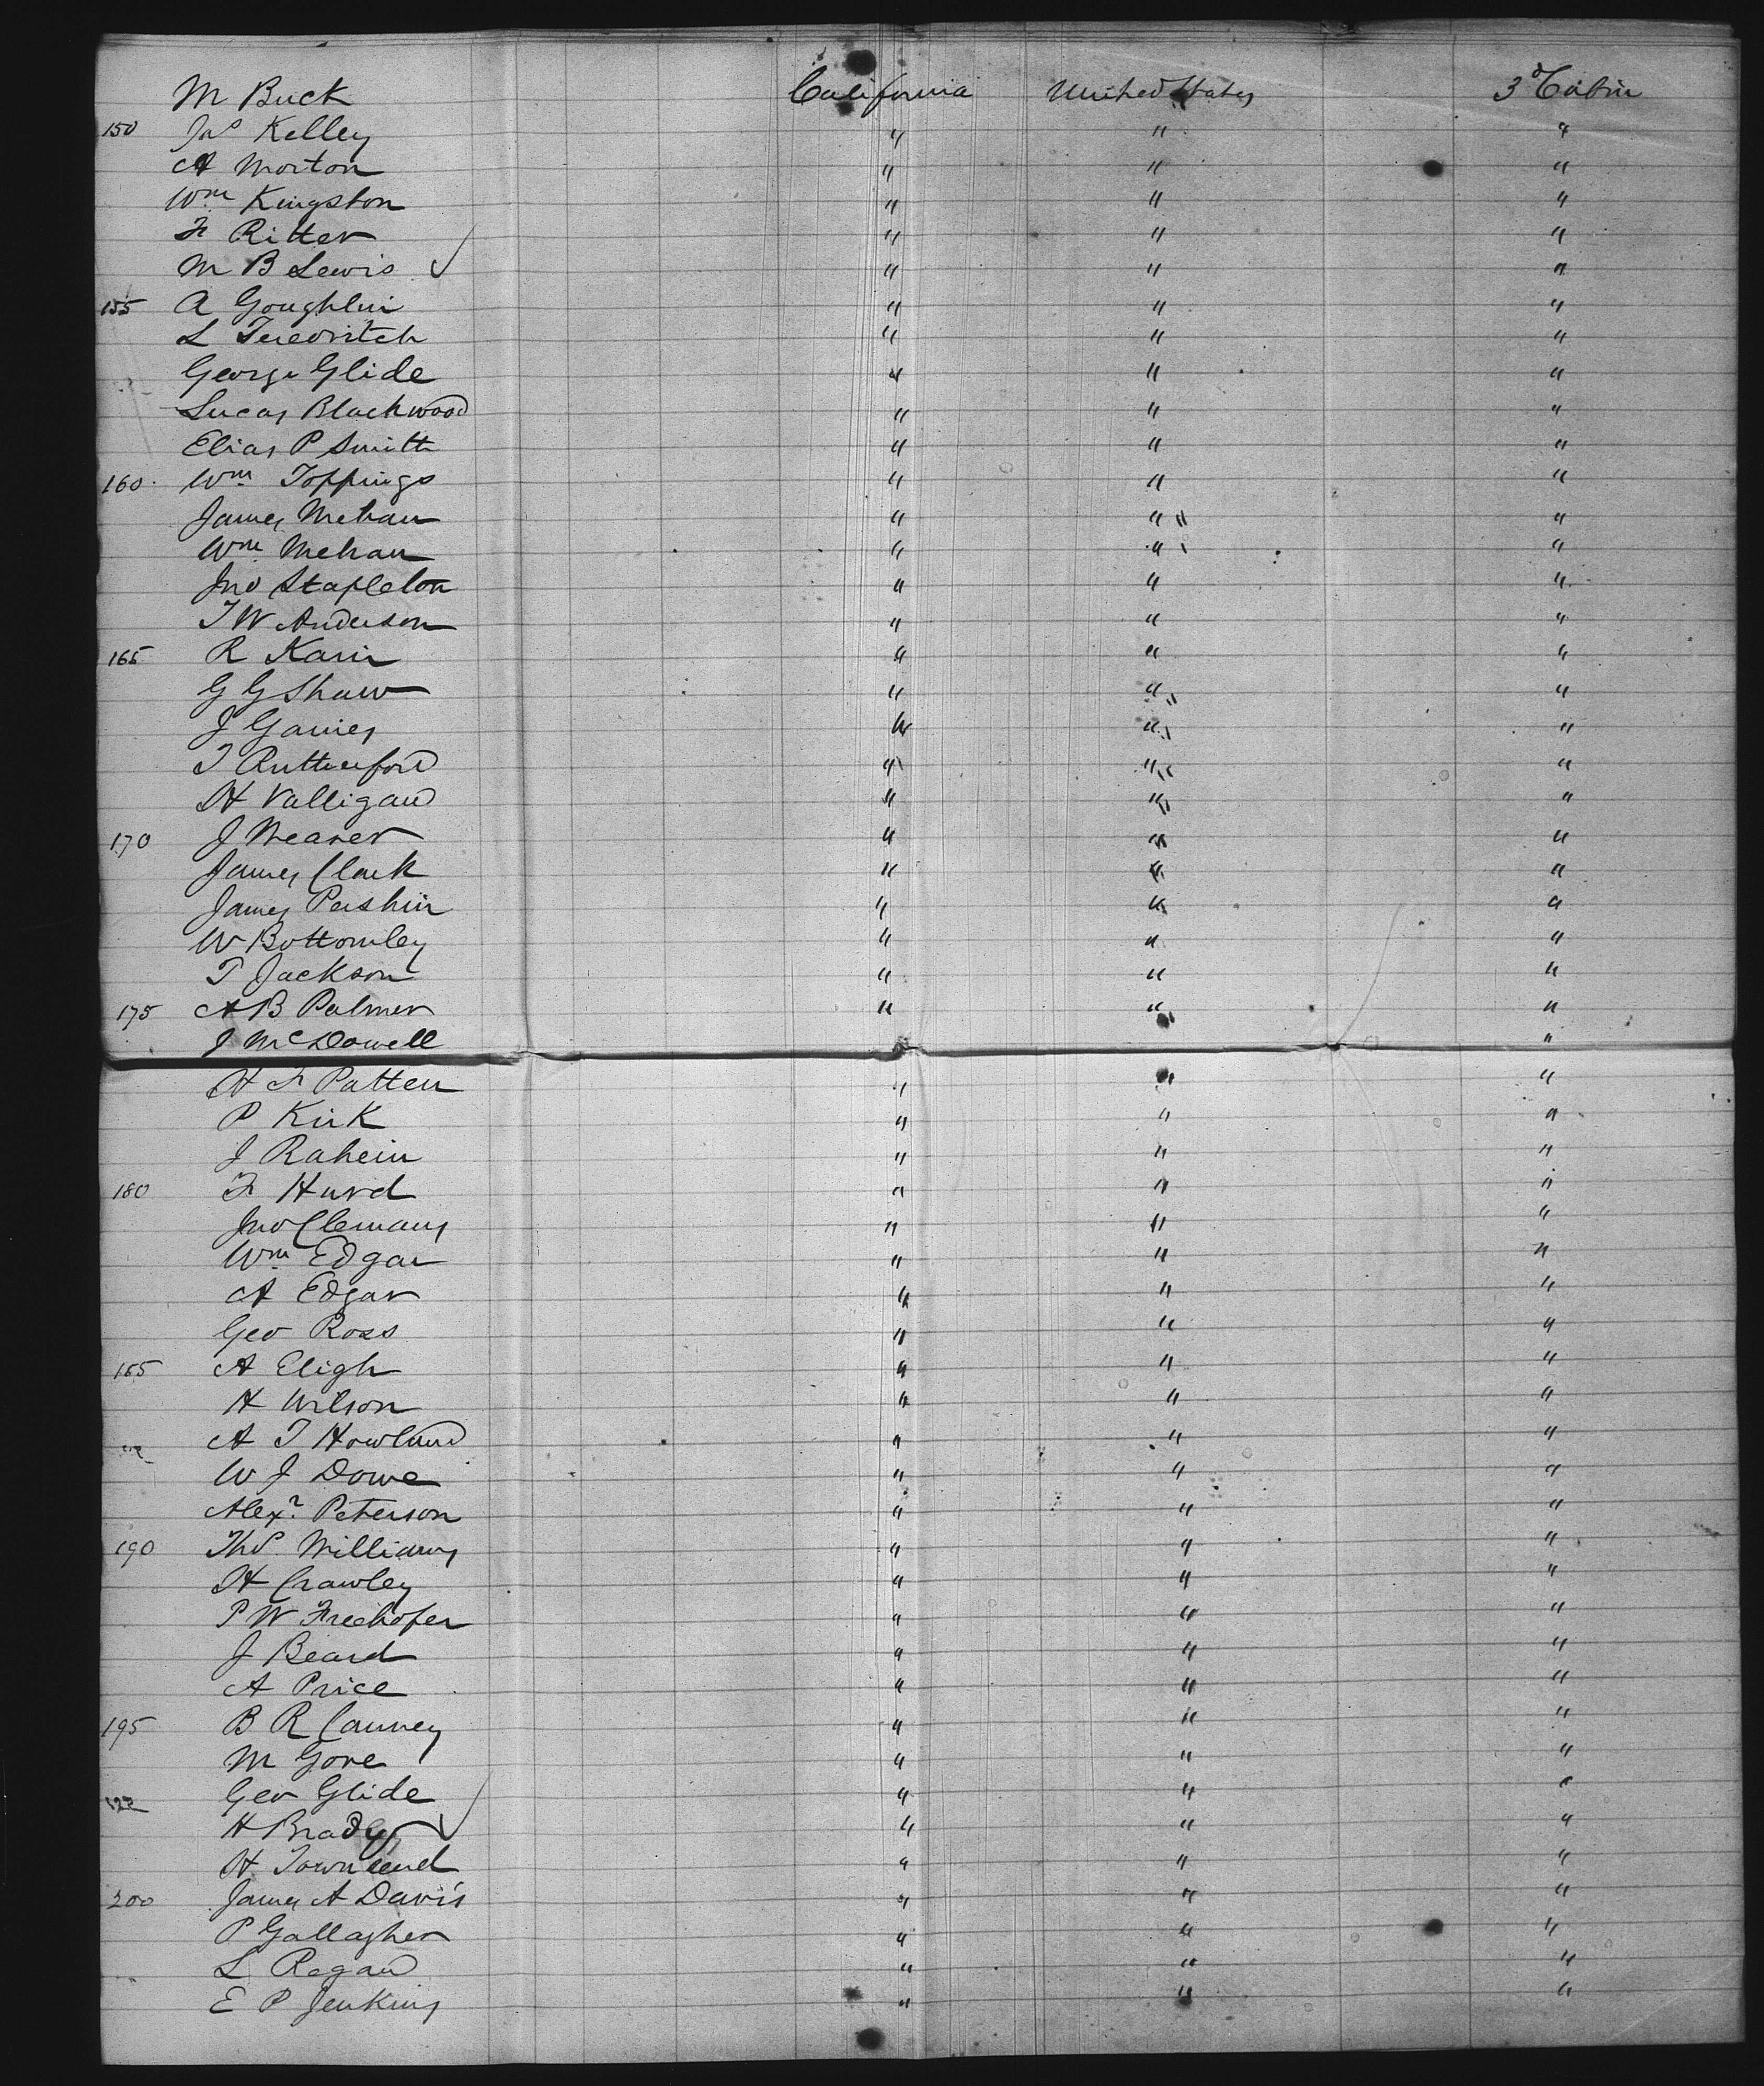 M Buck California United States 3d Cabin
150 Jas Kelley " " "
A Morton " " "
Wm Kingston " " "
F Ritter " " "
M B Lewis ✓ " " "
155 A Goughlin " " "
L " " "
George Glide " " "
Lucas Blackwood " " "
Elias P Smith " " "
160 Wm Toppings " " "
James Mehan " " "
Wm Mehan " " "
Jno Stapleton " " "
T W Anderson " " "
165 R " " "
G G Shaw " " "
J " " "
T Rutherford " " "
H Valligand " " "
170 J Weaver " " "
James Clark " " "
James Pershin " " "
W Bottomley " " "
T Jackson " " "
175 A B Palmer " " "
J McDowell "
H F Patten " " "
P Kirk " " "
J Rahein " " "
180 F Hurd " " "
Jno Clemans " " "
Wm Edgar " " "
A Edgar " " "
Geo Ross " " "
185 A Eligh " " "
H Wilson " " "
A T Howland " " "
W J Dowe " " "
Alexr Peterson " " "
190 Thos Williams " " "
H Crawley " " "
P W Freehofer " " "
J Beard " " "
A Price " " "
195 B R Canney " " "
M Gore " " "
Geo Glide " " "
H Brady ✓ " " "
H Townsend " " "
200 James A Davis " " "
P Gallagher " " "
L Ragan " " "
E P Jenkins " " "